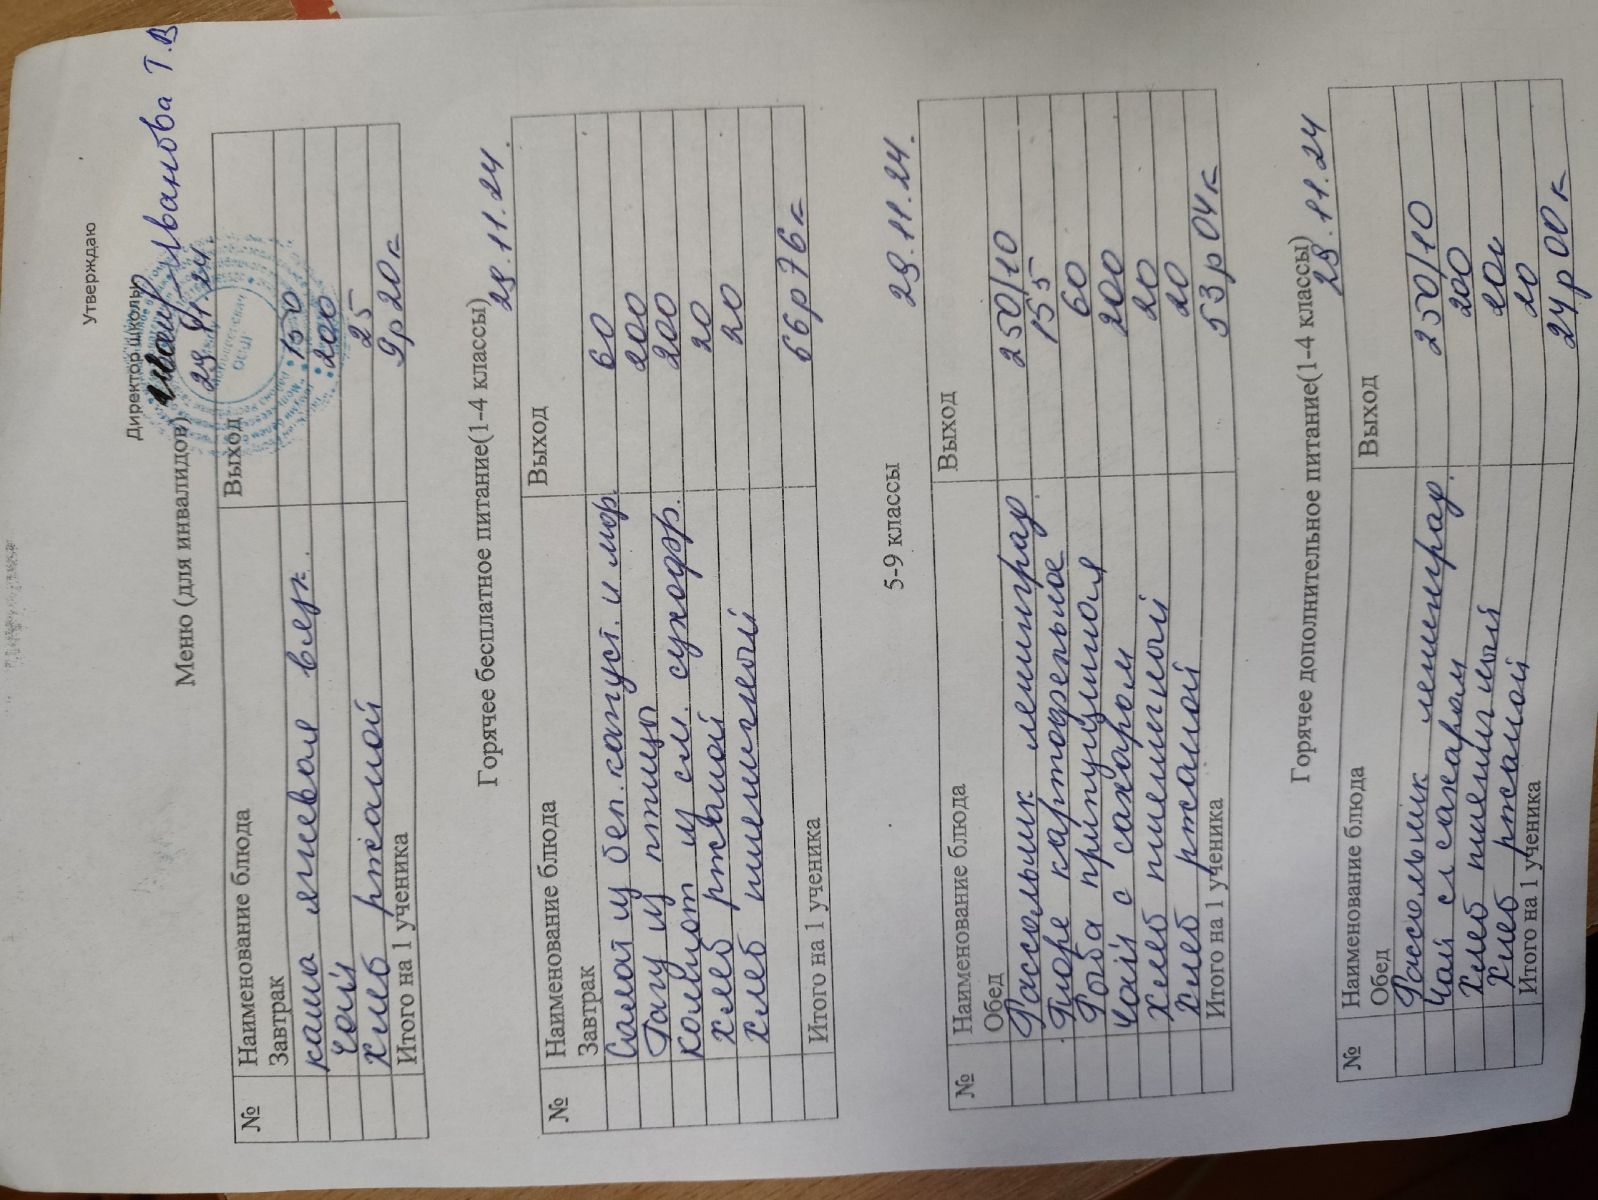 Утверждаю
Директор школы
Иванова Т.В
29.11.24
Меню (для инвалидов)
№ Наименование блюда Выход
Завтрак
каша ячневая вязк. 150
Чай 200
Хлеб ржаной 25
Итого на 1 ученика 9р20к
Горячее бесплатное питание(1-4 классы)
29.11.24.
№ Наименование блюда Выход
Завтрак
Салат из бел.капуст. и мор. 60
Рагу из птицы 200
Компот из см. сухофр. 200
Хлеб ржаной 20
Хлеб пшеничный 20
Итого на 1 ученика 66р76к
5-9 классы 29.11.24.
№ Наименование блюда Выход
Обед
Рассольник ленинград. 250/10
Пюре картофельное 155
Рыба припущиная 60
Чай с сахаром 200
Хлеб пшеничный 20
Хлеб ржаной 20
Итого на 1 ученика 53р04к
Горячее дополнительное питание(1-4 классы)
29.11.24
№ Наименование блюда Выход
Обед
Рассольник ленинград. 250/10
Чай с сахаром 200
Хлеб пшеничный 20
Хлеб ржаной 20
Итого на 1 ученика 24р00к